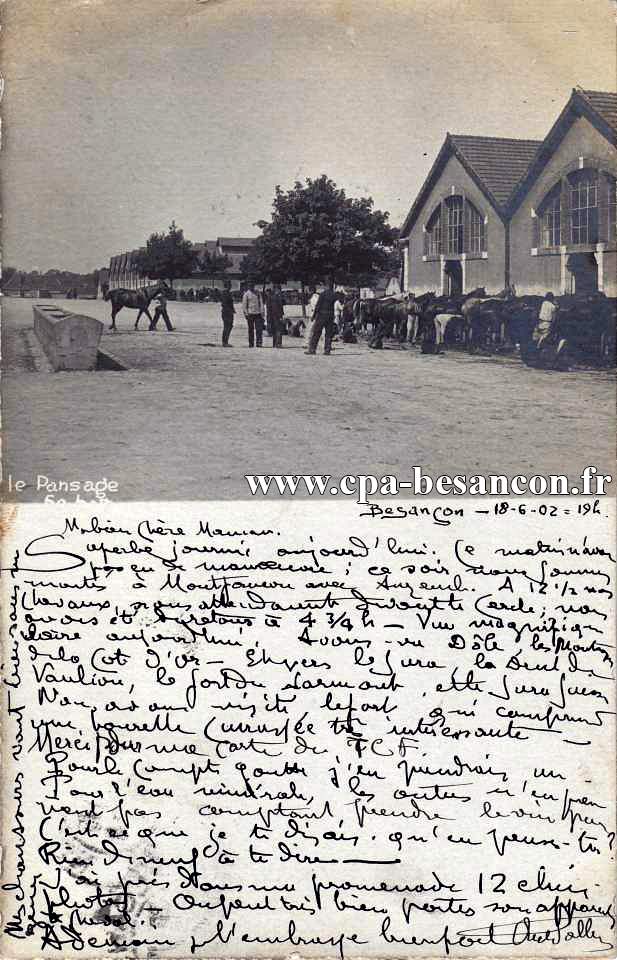 le Pansage
www.cpa-besancon.fr
Besançon - 18-6-02 = 19h.
Ma bien Chère Maman.
Superbe journée aujourd'hui. Ce matin n'avons
pas eu de manœuvre ; ce soir nous sommes
montés à Montfaucon avec A 12 1/2 nos
chevaux, nous attendaient devant le Cercle, nous
avons été de retour à 4 3/4 h - Vue magnifique
aujourd'hui. Avons vu Dôle, les Monts
de la Cote d'Or - le Jura, la Dent de
Vaulion, le fort du Larmont,
Nous avons visité le fort qui comprend
une tourelle cuirassée très intéressante -
Merci pour ma carte du TCF.
Pour le Compte goutte j'en prendrais un
Pour l'eau minérale, les autres n'en
pas comptant prendre le vin pur
C'est ce que je te disais. qu'en penses-tu?
Rien de neuf à te dire -
J'ai pris dans ma promenade 12 clichés
photos
à cheval.
A demain je t'embrasse bien fort
Mes chaussures vont bien sans me
gener